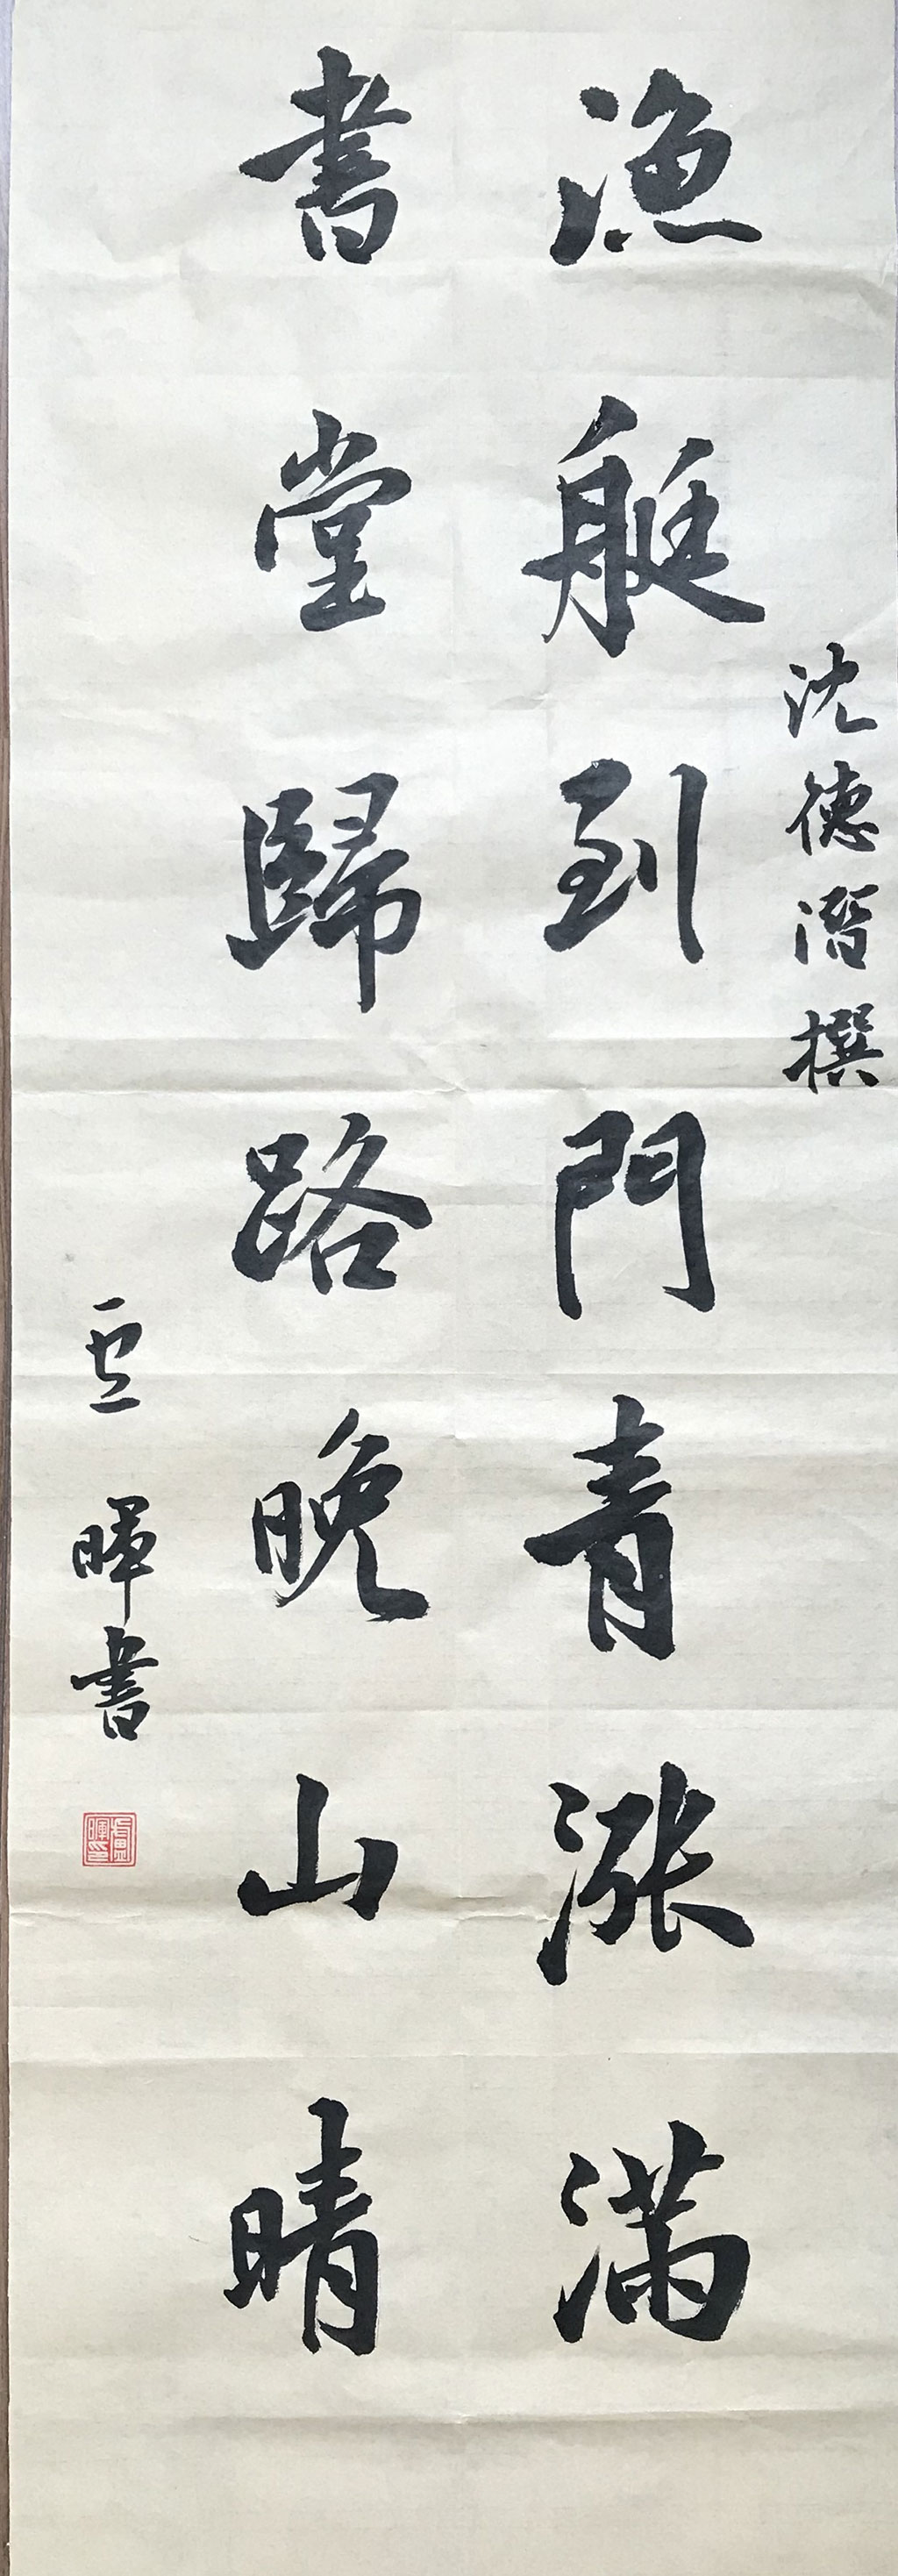 沈德潛撰
漁艇到門青漲滿
書堂歸路晚山晴
盧暉書
盧暉印